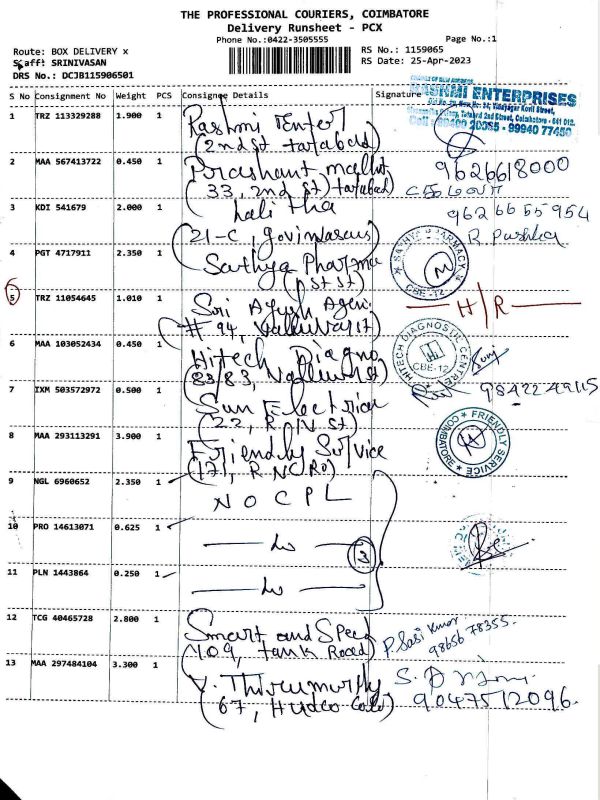 THE PROFESSIONAL COURIERS, COIMBATORE
Delivery Runsheet - PCX
Phone No.:0422-3505555 Page No.:1
Route: BOX DELIVERY x RS No.: 1159065
Staff: SRINIVASAN RS Date: 25-Apr-2023
DRS No.: DCJB115906501
S No Consignment No Weight PCS Consignee Details Signature
RASHMI ENTERPRISES
1 TRZ 113329288 1.900 1 Rashmi Enter
(2nd st tatabad)
2 MAA 567413722 0.450 1 Prashant 9626618000
(33, 2nd st) tatabad
3 KDI 541679 2.000 1 Lalitha 9626655954
(21-C, R. Pushpa
4 PGT 4717911 2.350 1 Sathya Pharma
SATHYA PHARMACY CBE-12
(1st st)
5 TRZ 11054645 1.010 1 Sri Agen. H/R
# 94,
6 MAA 103052434 0.450 1 Hitech Diagno
HITECH DIAGNOSTIC CENTRE CBE-12
(83/83,
7 IXM 503572972 0.500 1 Sun Electrical
(22, R. N st)
8 MAA 293113291 3.900 1 Friendly Service
FRIENDLY SERVICE COIMBATORE
(171, R NC Ro)
9 NGL 6960652 2.350 1 NO CPL
10 PRO 14613071 0.625 1 3
11 PLN 1443864 0.250 1
12 TCG 40465728 2.800 1 Smart and Speed P. Sasi Kumar
(109, tank Road) 98656 78355.
13 MAA 297484104 3.300 1 V. Thirumurthy
(67, Hudco Colo) 9047512096.